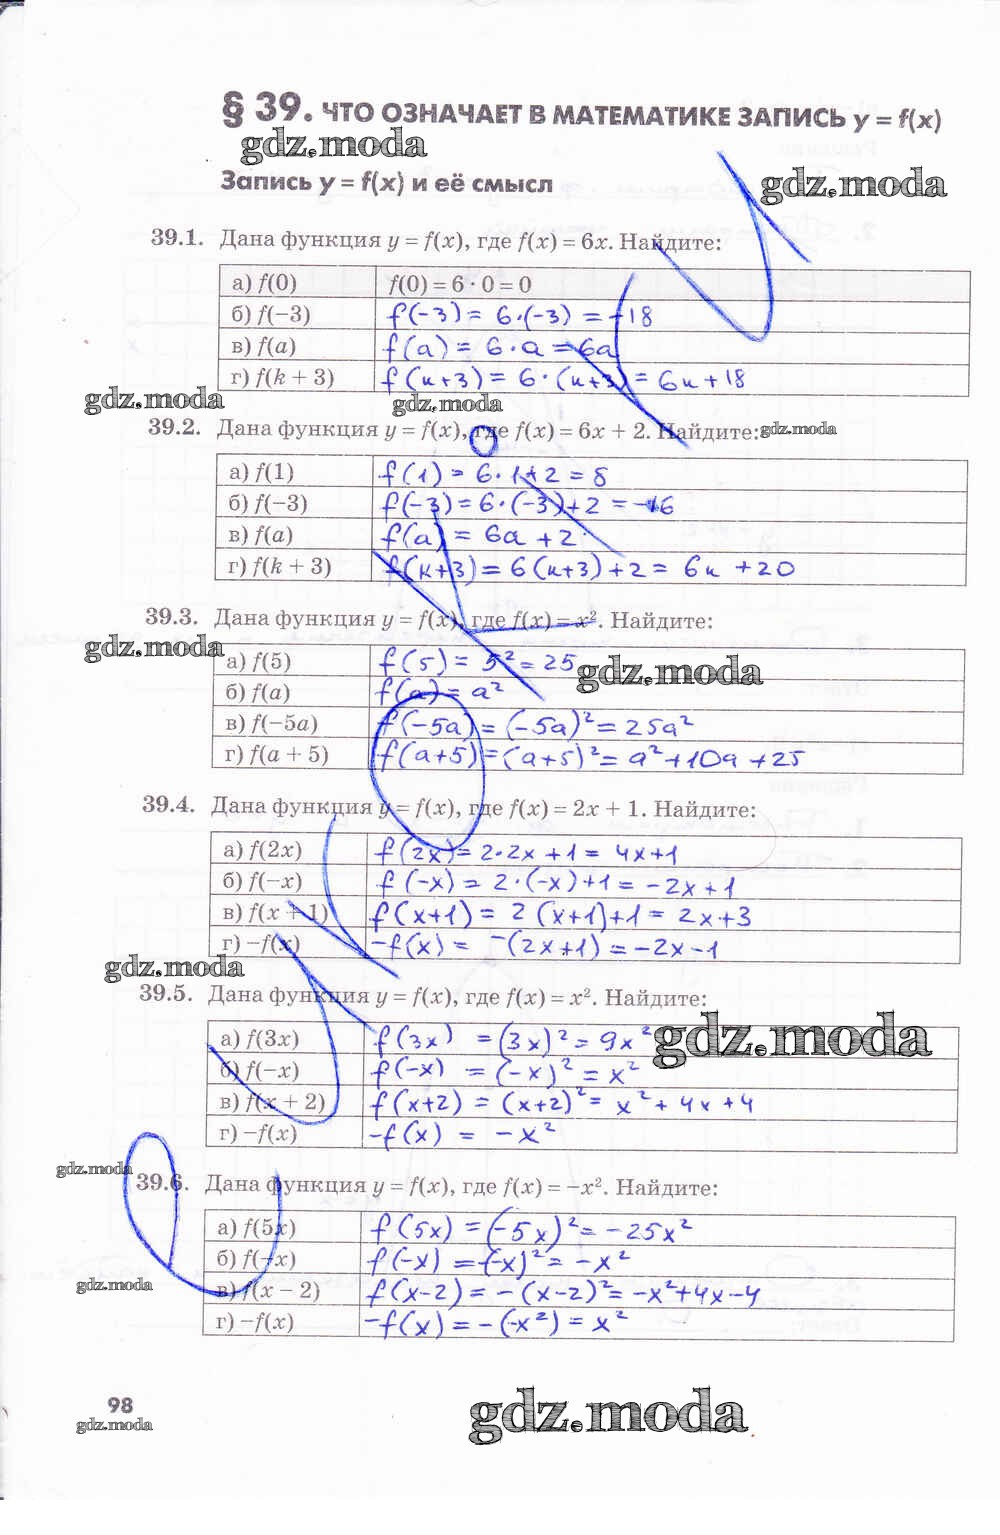 § 39. ЧТО ОЗНАЧАЕТ В МАТЕМАТИКЕ ЗАПИСЬ y = f(x)
gdz.moda
Запись y = f(x) и её смысл
gdz.moda
39.1. Дана функция y = f(x), где f(x) = 6x. Найдите:
а) f(0) f(0) = 6 · 0 = 0
б) f(−3) f(-3) = 6·(-3) = -18
в) f(a) f(a) = 6·a = 6a
г) f(k + 3) f(k+3) = 6·(k+3) = 6k+18
gdz.moda gdz.moda
39.2. Дана функция y = f(x), где f(x) = 6x + 2. Найдите: gdz.moda
а) f(1) f(1) = 6·1+2 = 8
б) f(−3) f(-3) = 6·(-3)+2 = -16
в) f(a) f(a) = 6a +2
г) f(k + 3) f(k+3) = 6(k+3)+2 = 6k +20
39.3. Дана функция y = f(x), где f(x) = x². Найдите:
gdz.moda
а) f(5) f(5) = 5² = 25
gdz.moda
б) f(a) f(a) = a²
в) f(−5a) f(-5a) = (-5a)² = 25a²
г) f(a + 5) f(a+5) = (a+5)² = a²+10a+25
39.4. Дана функция y = f(x), где f(x) = 2x + 1. Найдите:
а) f(2x) f(2x) = 2·2x +1 = 4x+1
б) f(−x) f(-x) = 2·(-x)+1 = -2x+1
в) f(x + 1) f(x+1) = 2(x+1)+1 = 2x+3
г) −f(x) -f(x) = -(2x+1) = -2x-1
gdz.moda
39.5. Дана функция y = f(x), где f(x) = x². Найдите:
а) f(3x) f(3x) = (3x)² = 9x²
gdz.moda
б) f(−x) f(-x) = (-x)² = x²
в) f(x + 2) f(x+2) = (x+2)² = x²+4x+4
г) −f(x) -f(x) = -x²
gdz.moda
39.6. Дана функция y = f(x), где f(x) = −x². Найдите:
а) f(5x) f(5x) = (-5x)² = -25x²
б) f(−x) f(-x) = (-x)² = -x²
gdz.moda
в) f(x − 2) f(x-2) = -(x-2)² = -x²+4x-4
г) −f(x) -f(x) = -(-x²) = x²
98
gdz.moda
gdz.moda